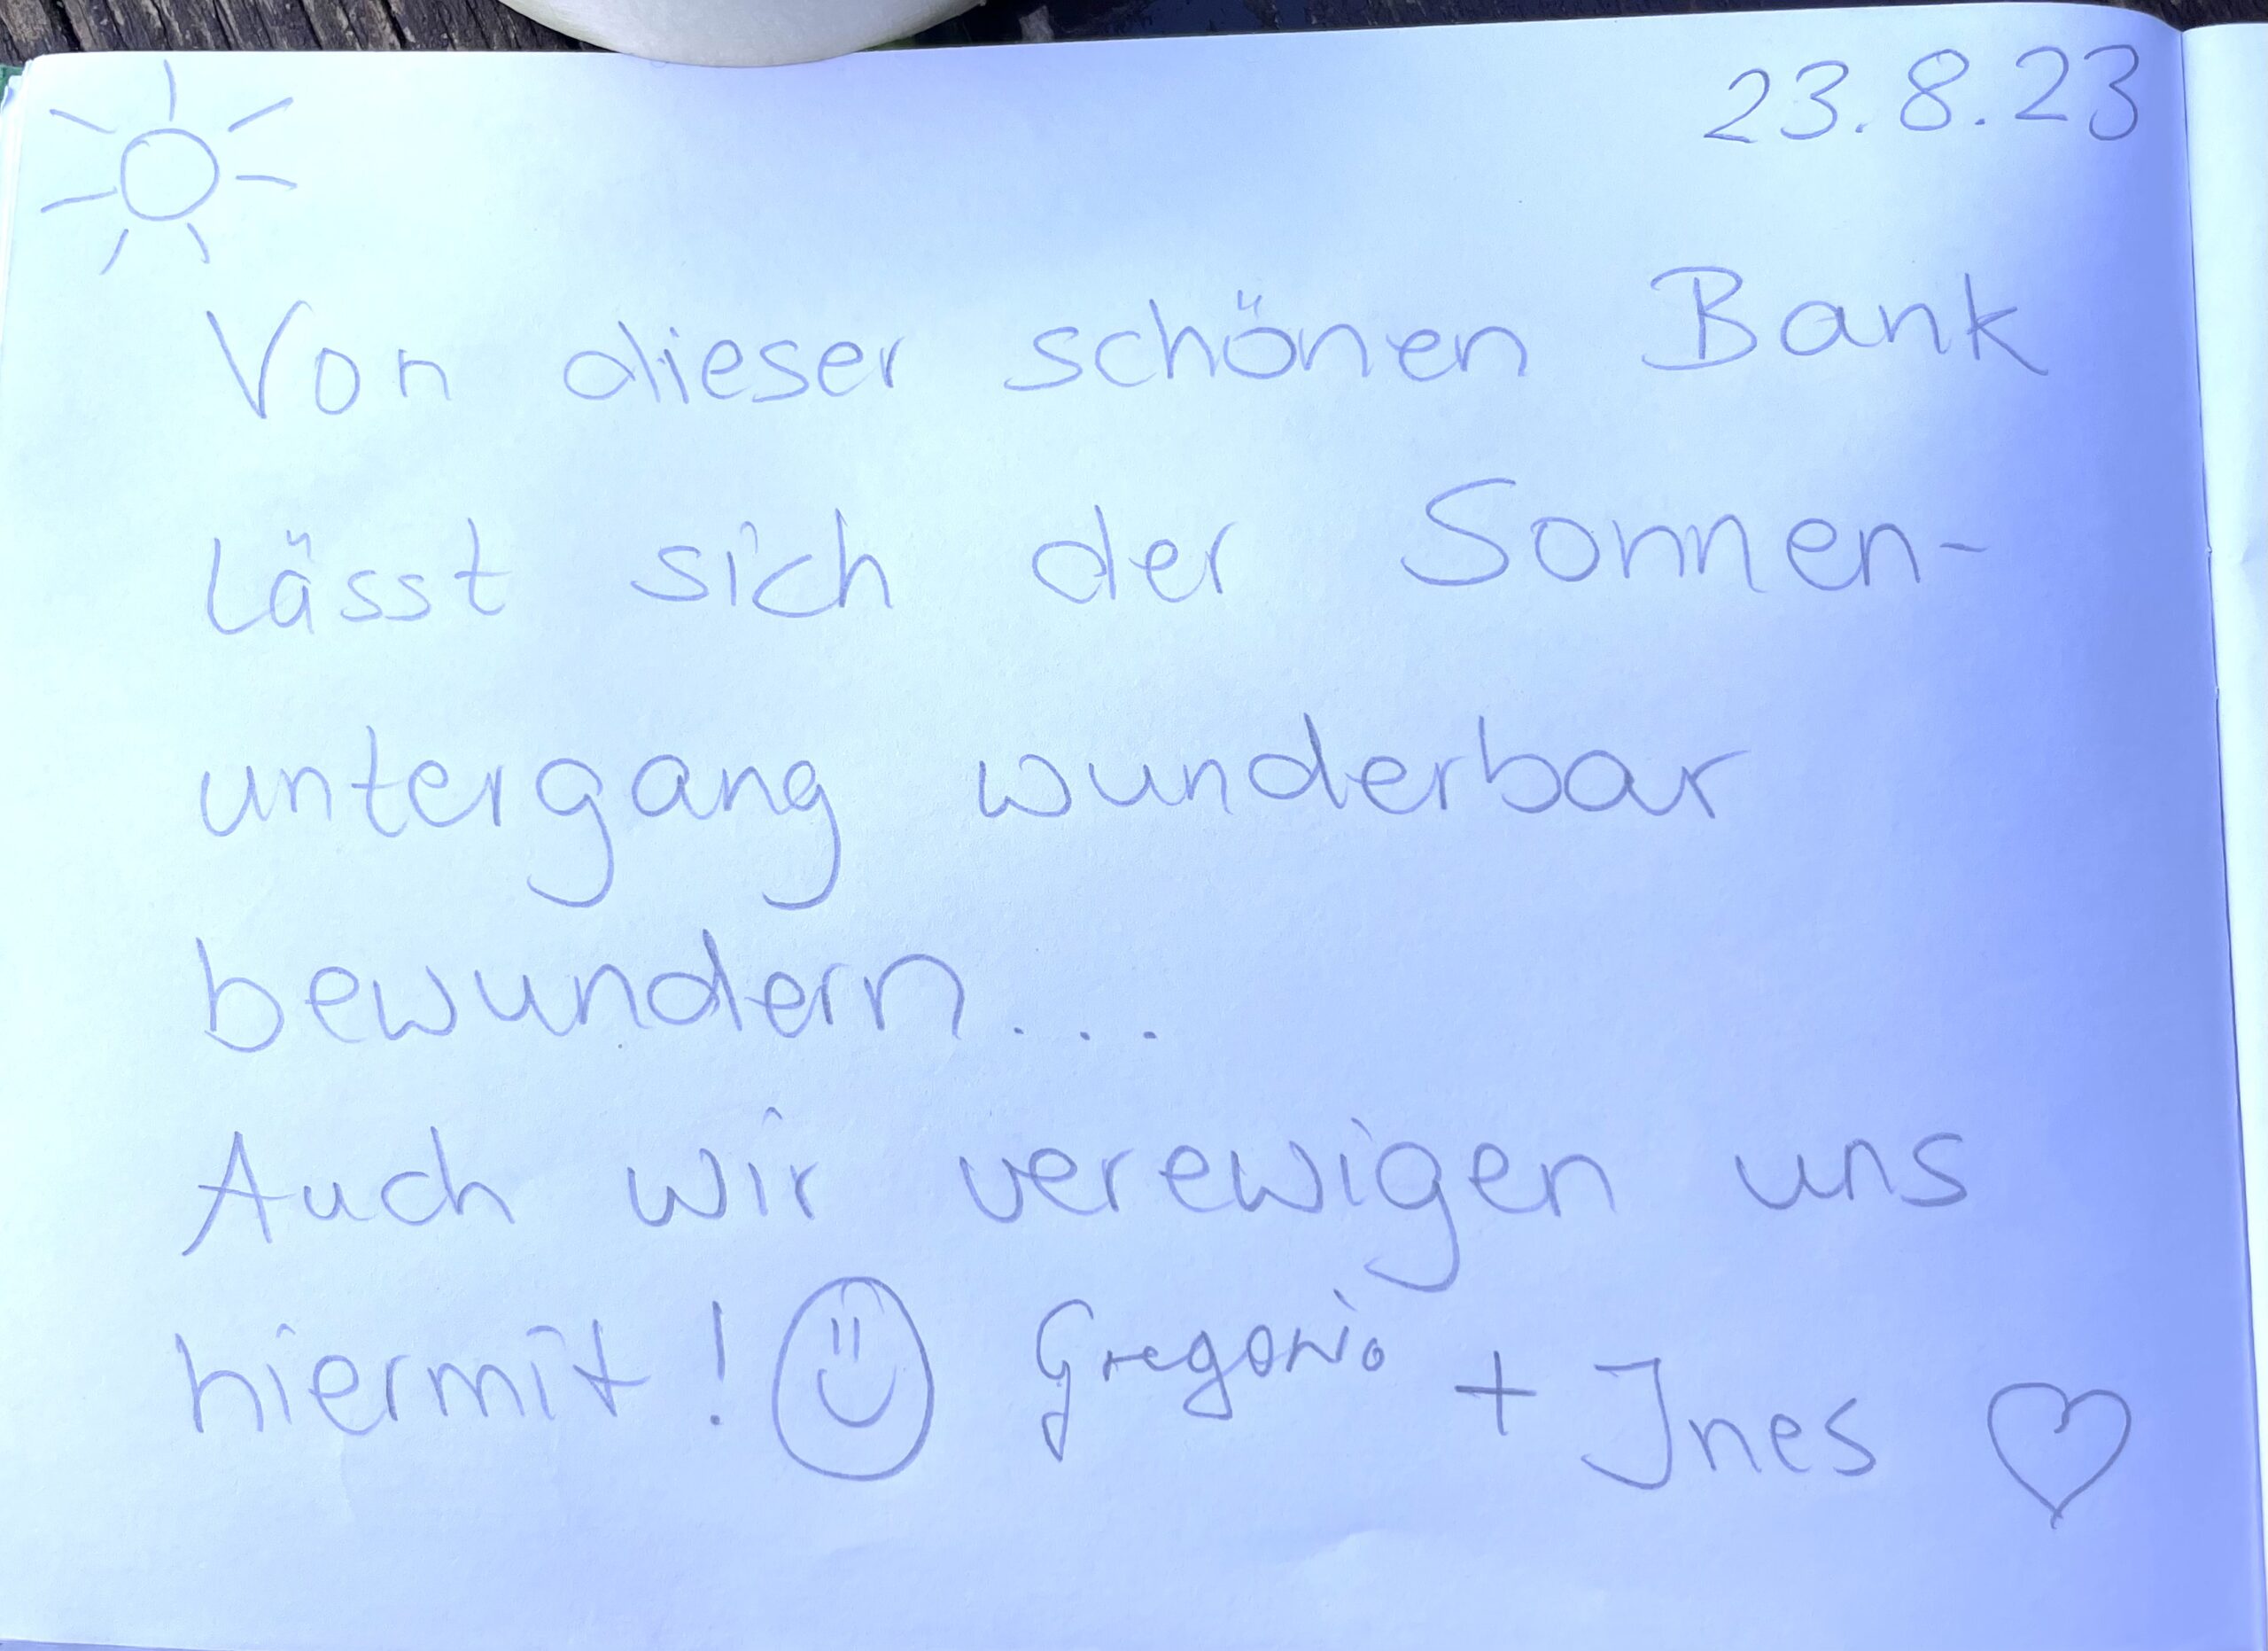 23.8.23
Von dieser schönen Bank
lässt sich der Sonnen-
untergang wunderbar
bewundern...
Auch wir verewigen uns
hiermit! Gregorio + Ines